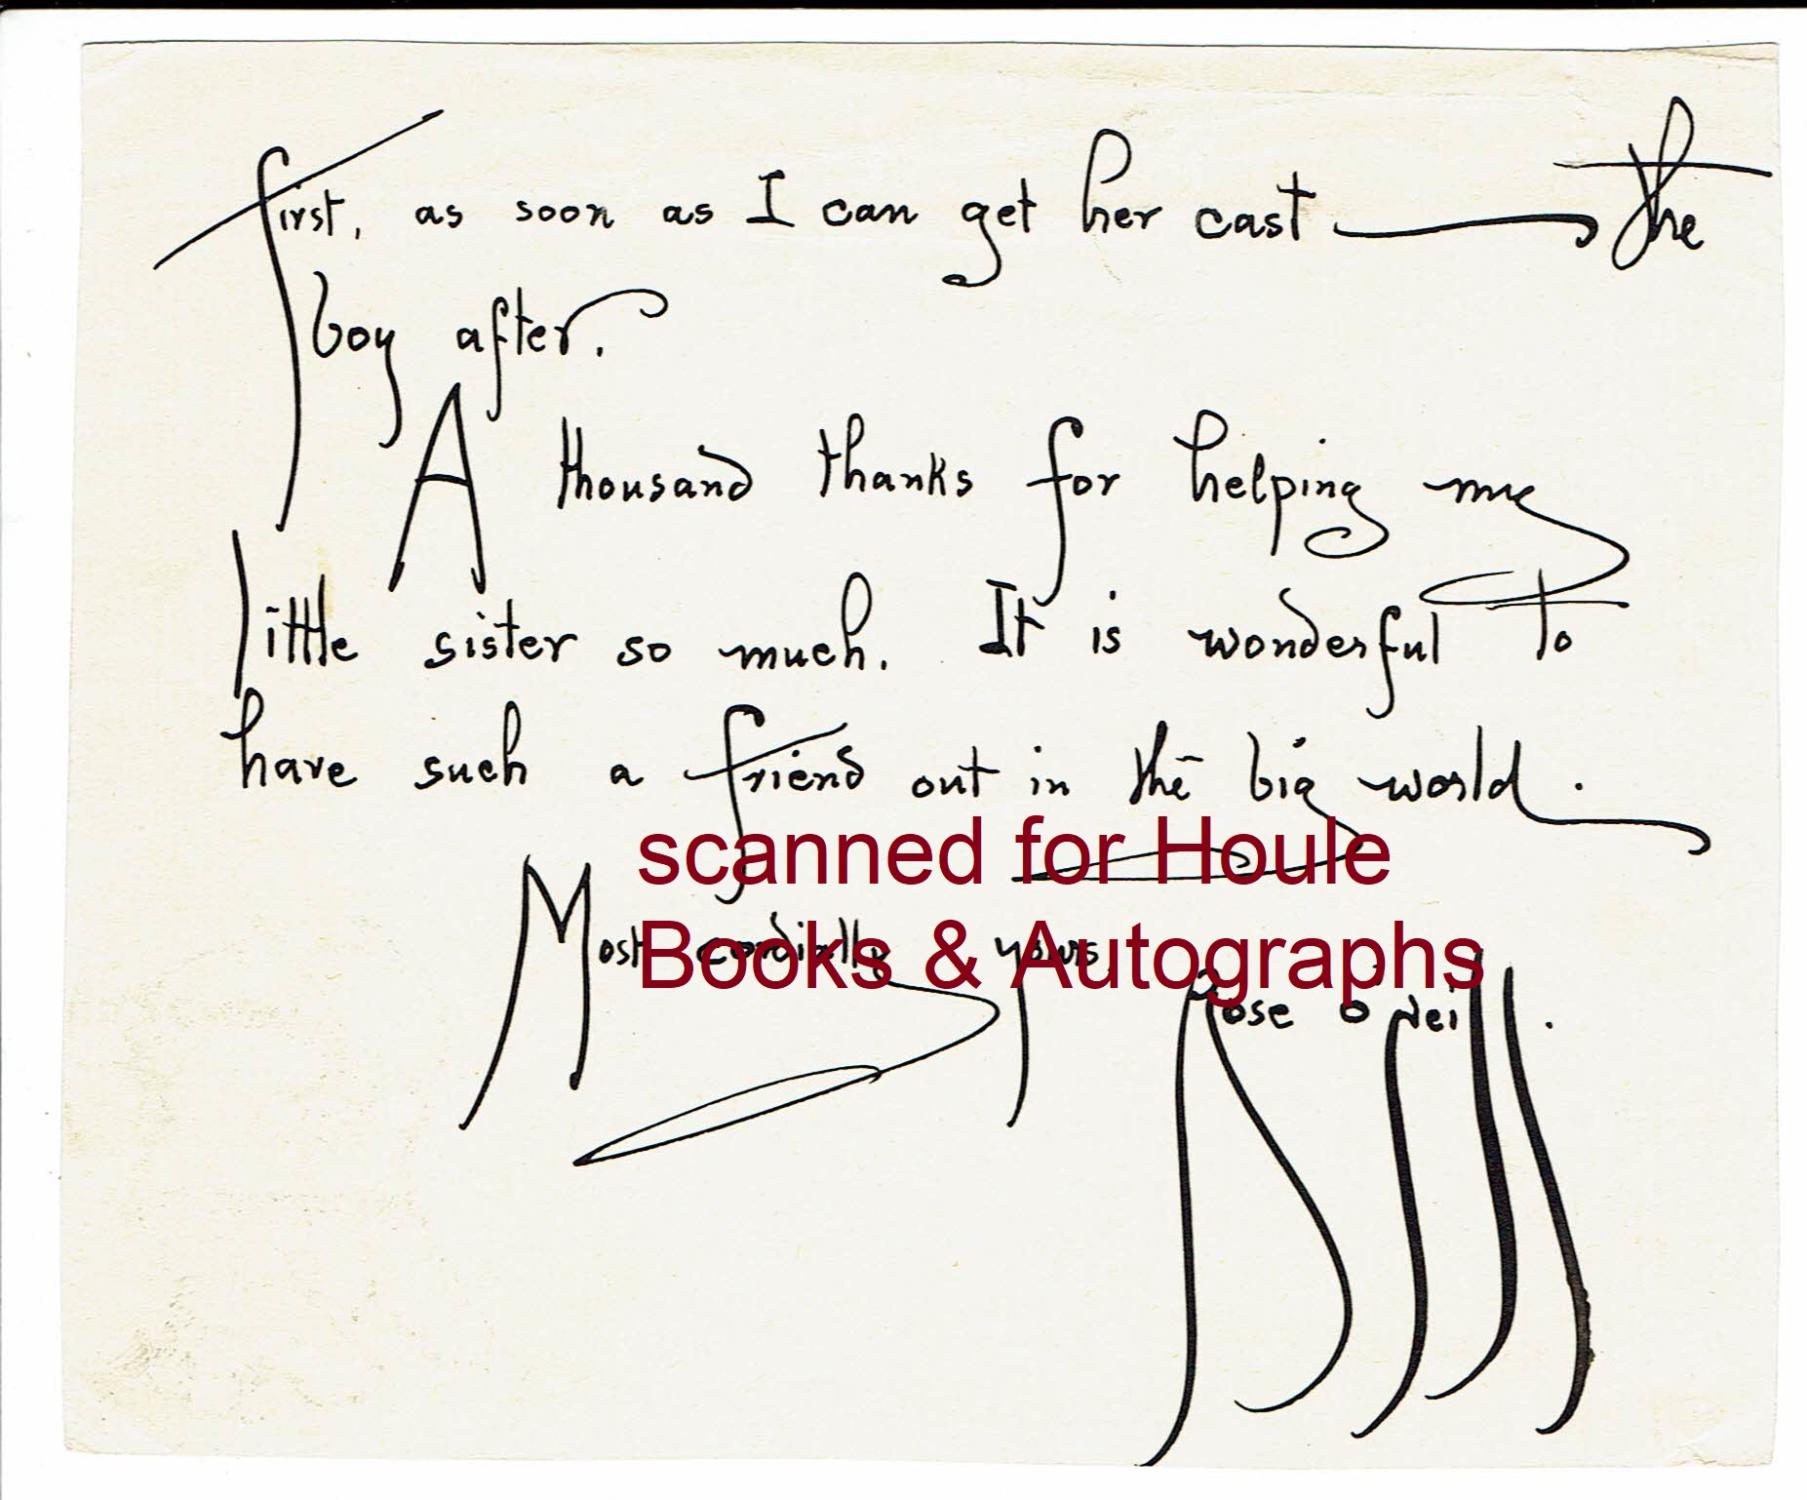 first, as soon as I can get her cast — the
boy after.
A thousand thanks for helping my
little sister so much. It is wonderful to
have such a friend out in the big world.
scanned for Houle
Most cordially yours,
Books & Autographs
Rose O'Neill.